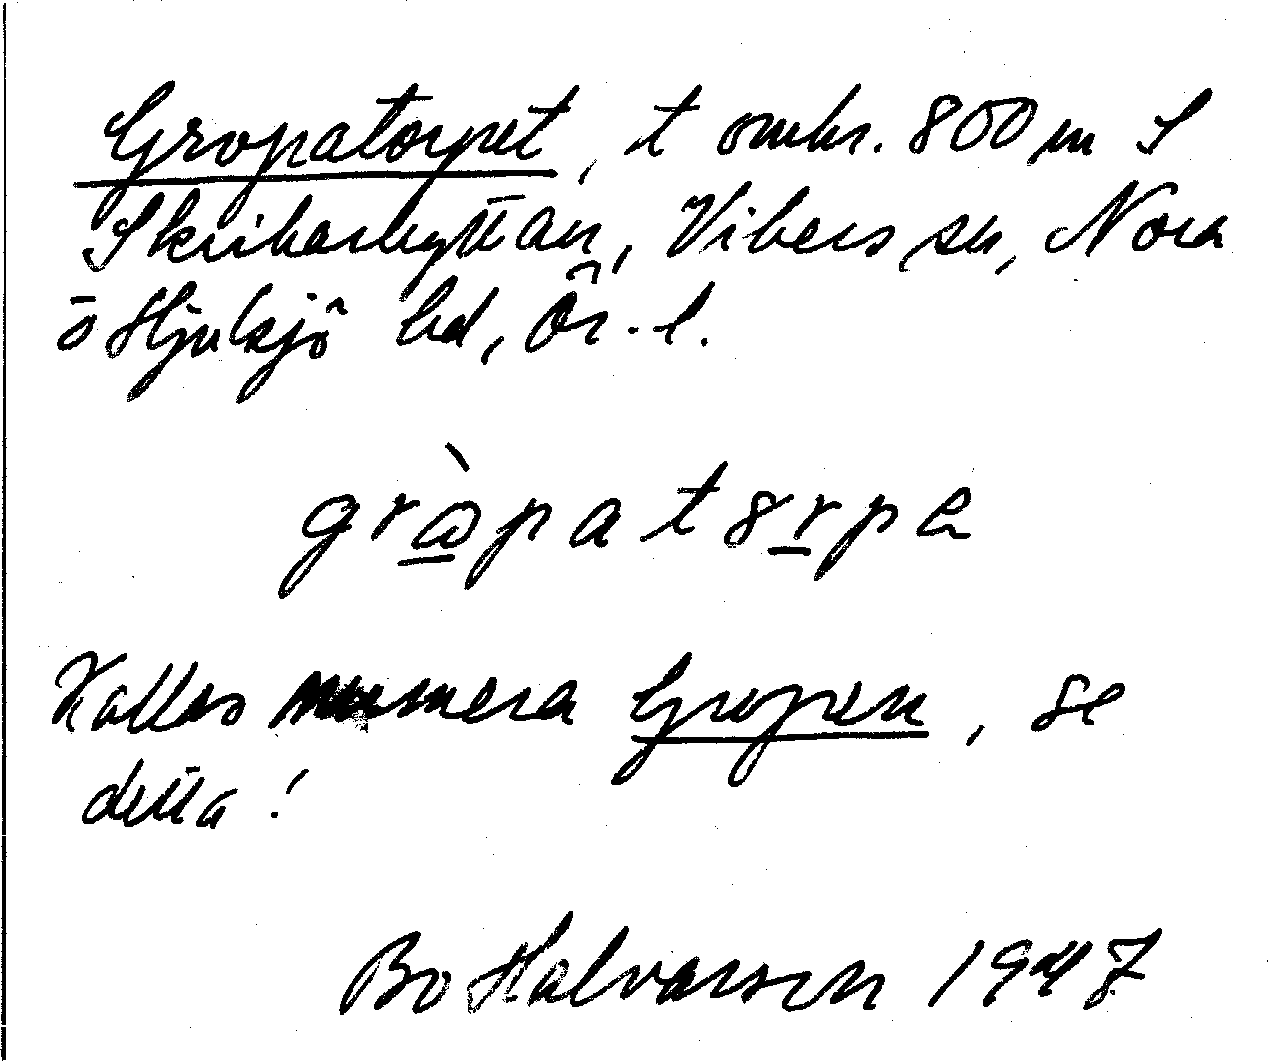 Gropatorpet, t omkr. 800 m S
Skrikarhyttan, Vibers sn, Nora
o Hjulsjö bd, Ör. l.
grȧpatȣrpe
Kallas numera Gropen, se
detta!
Bo Halvarson 1947